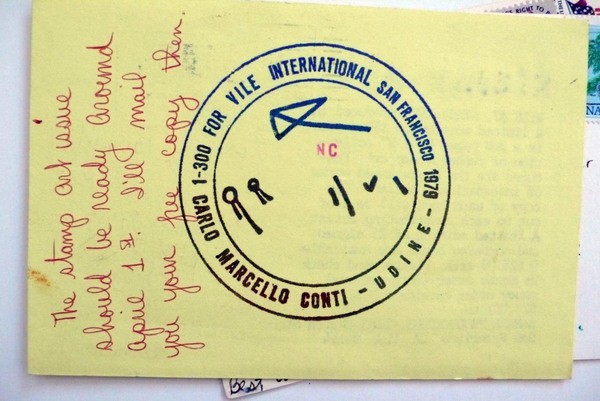 The stamp art issue
should be ready around
april 1st. I'll mail
you your free copy then.
1-300 FOR VILE INTERNATIONAL SAN FRANCISCO 1979
NC
CARLO MARCELLO CONTI - UDINE -
Best,